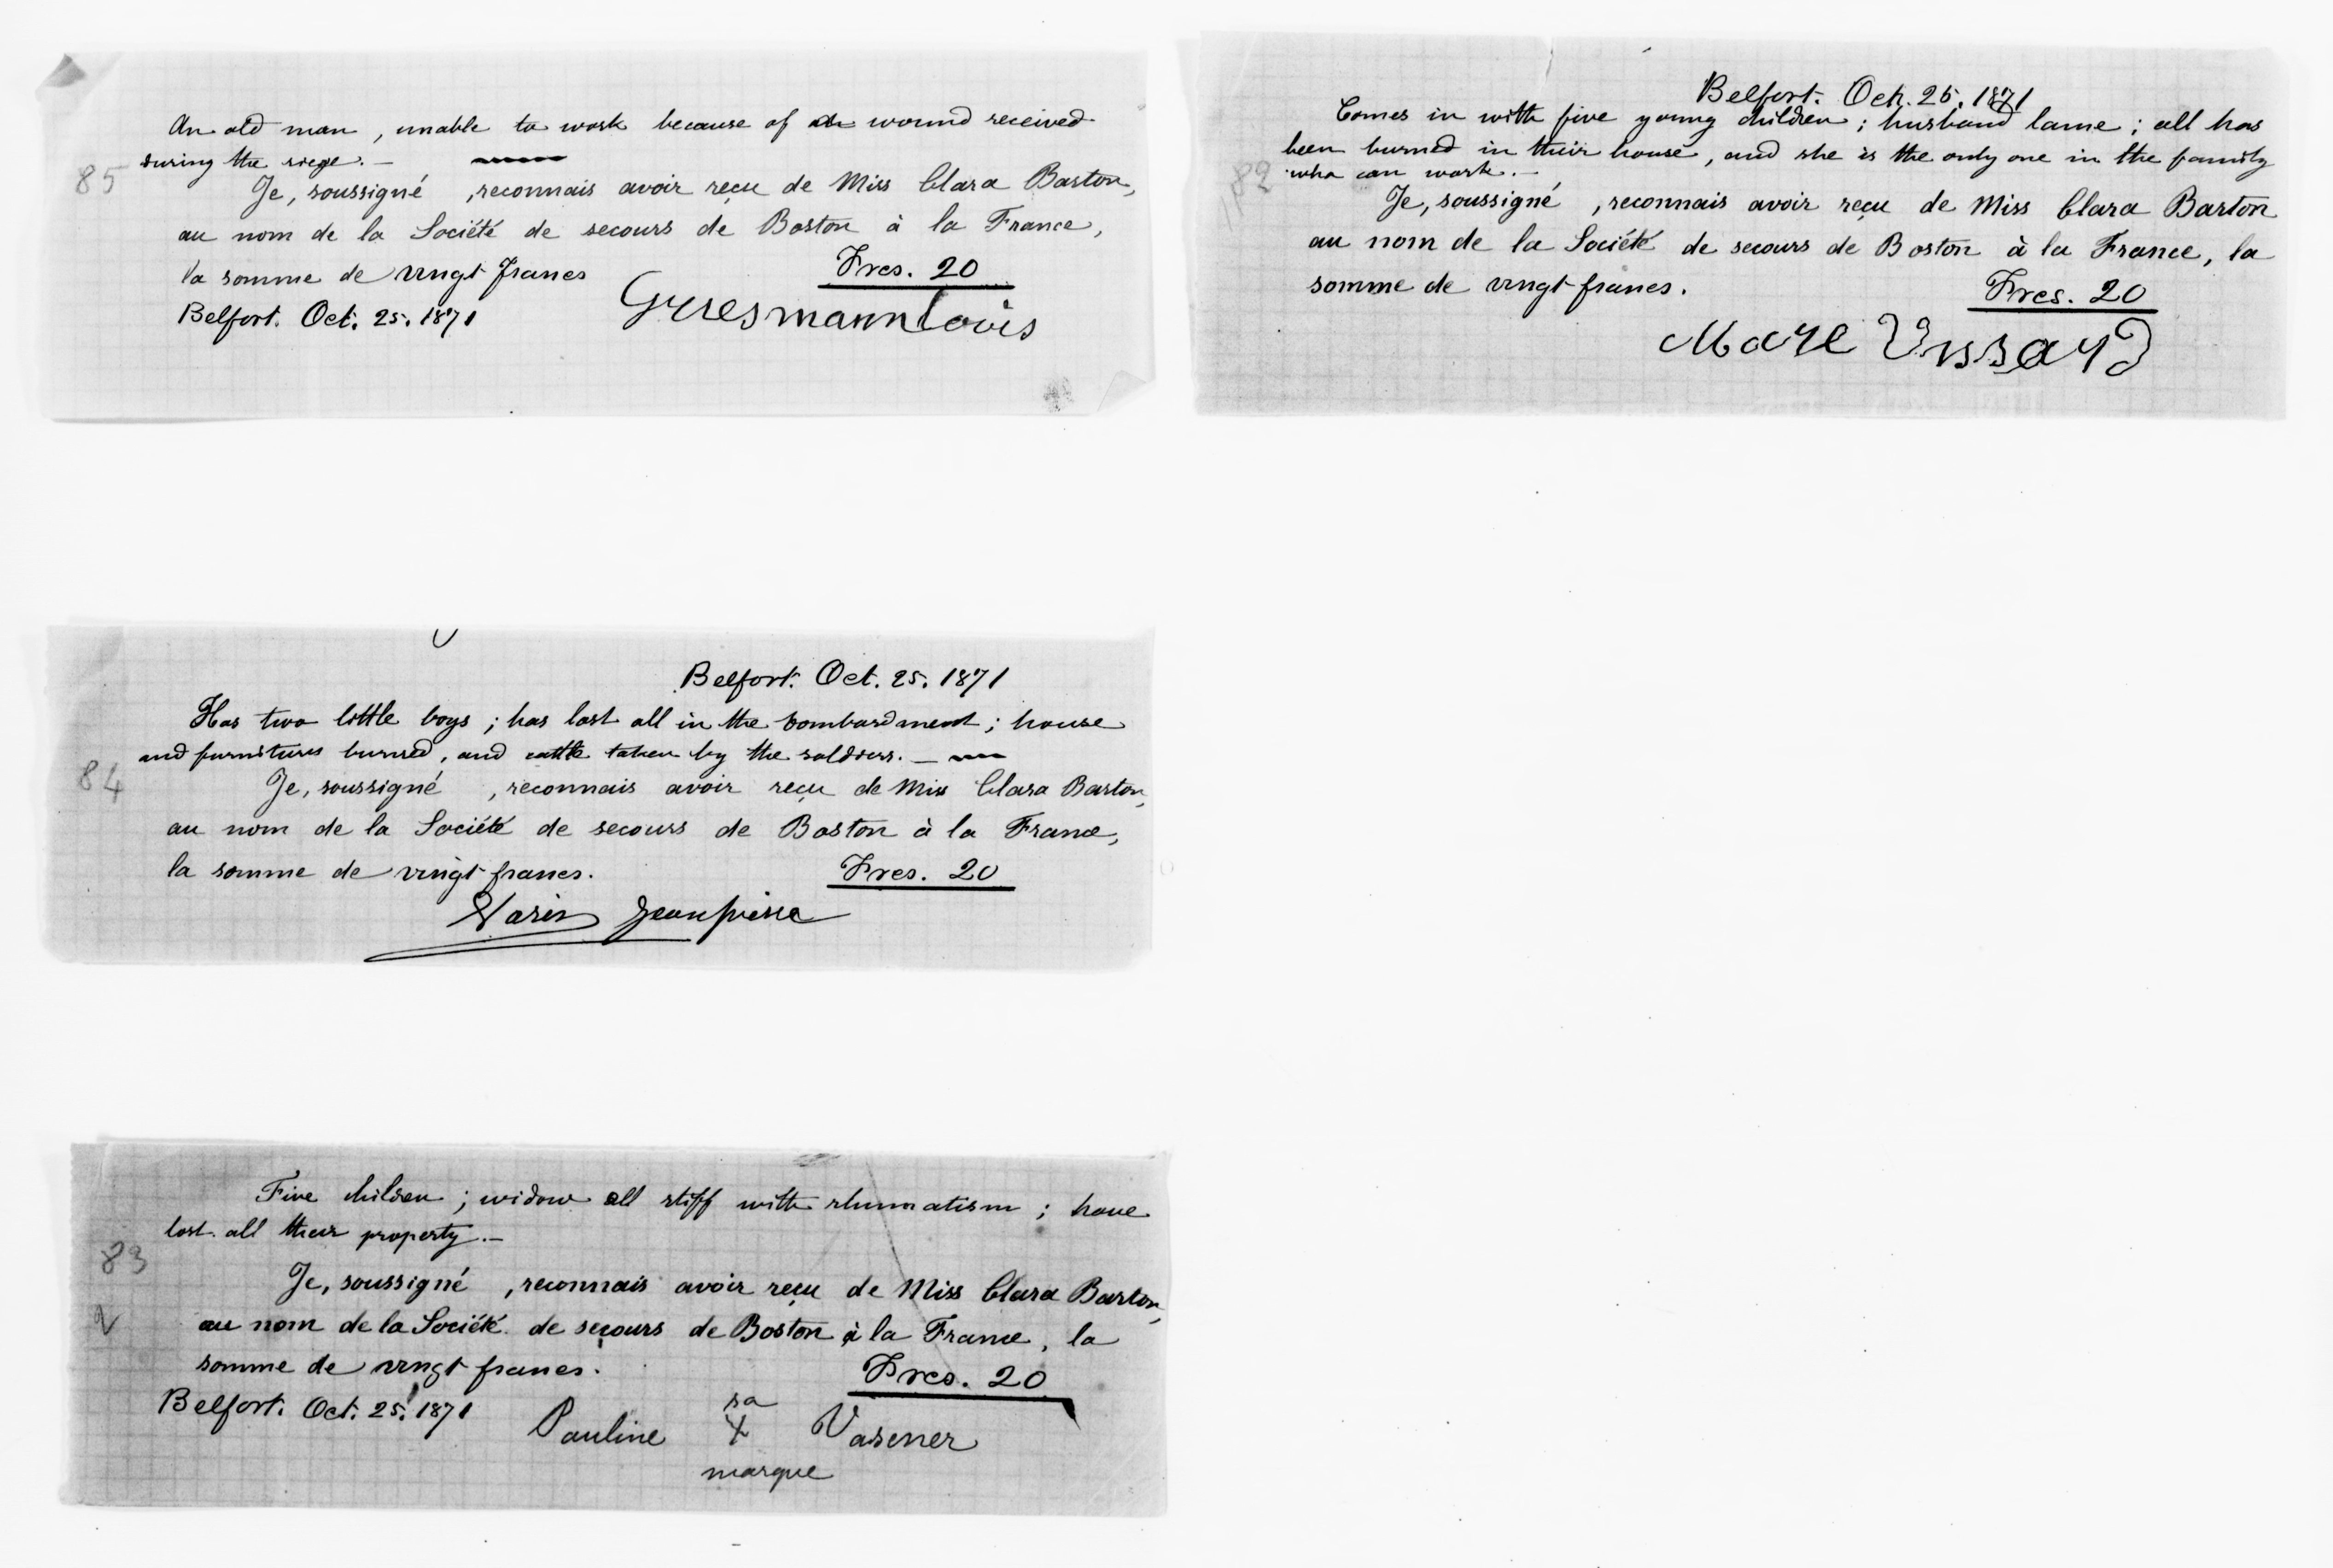 An old man, unable to work because of wound received
during the siege. —
85
Je, soussigné , reconnais avoir reçu de Miss Clara Barton,
au nom de la Société de secours de Boston à la France,
la somme de vingt francs Frcs. 20
Belfort. Oct. 25. 1871
Louis
Belfort. Oct. 25. 1871
Comes in with five young children; husband lame; all has
been burned in their house, and she is the only one in the family
who can work. —
82
Je, soussigné , reconnais avoir reçu de Miss Clara Barton
au nom de la Société de secours de Boston à la France, la
somme de vingt francs. Frcs. 20
Belfort. Oct. 25. 1871
Has two little boys; has lost all in the bombardment; house
and furnitures burned, and cattle taken by the soldiers. —
84
Je, soussigné , reconnais avoir reçu de Miss Clara Barton,
au nom de la Société de secours de Boston à la France,
la somme de vingt francs. Frcs. 20
Jeanpierre
Five children; widow all stiff with rhumatism; have
lost all their property. —
83
Je, soussigné , reconnais avoir reçu de Miss Clara Barton,
au nom de la Société de secours de Boston à la France, la
somme de vingt francs. Frcs. 20
Belfort. Oct. 25. 1871
sa
Pauline X Vasener
marque